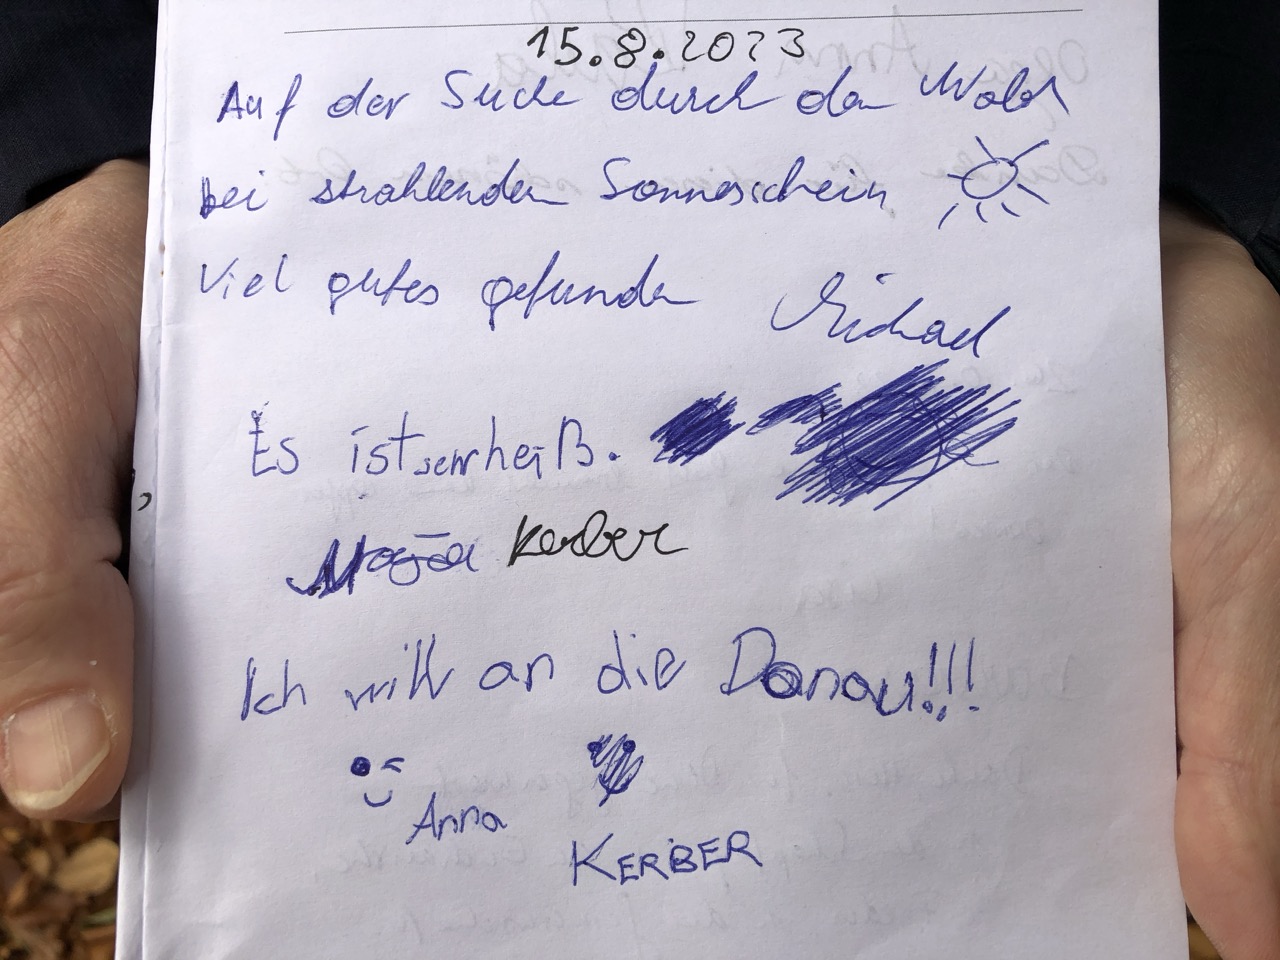 15.8.2023
Auf der Suche durch den Wald
bei strahlenden Sonnesschein
Viel gutes gefunden Michael
Es ist sehr heiß.
Kerber
Ich will an die Donau!!!
Anna
KERBER